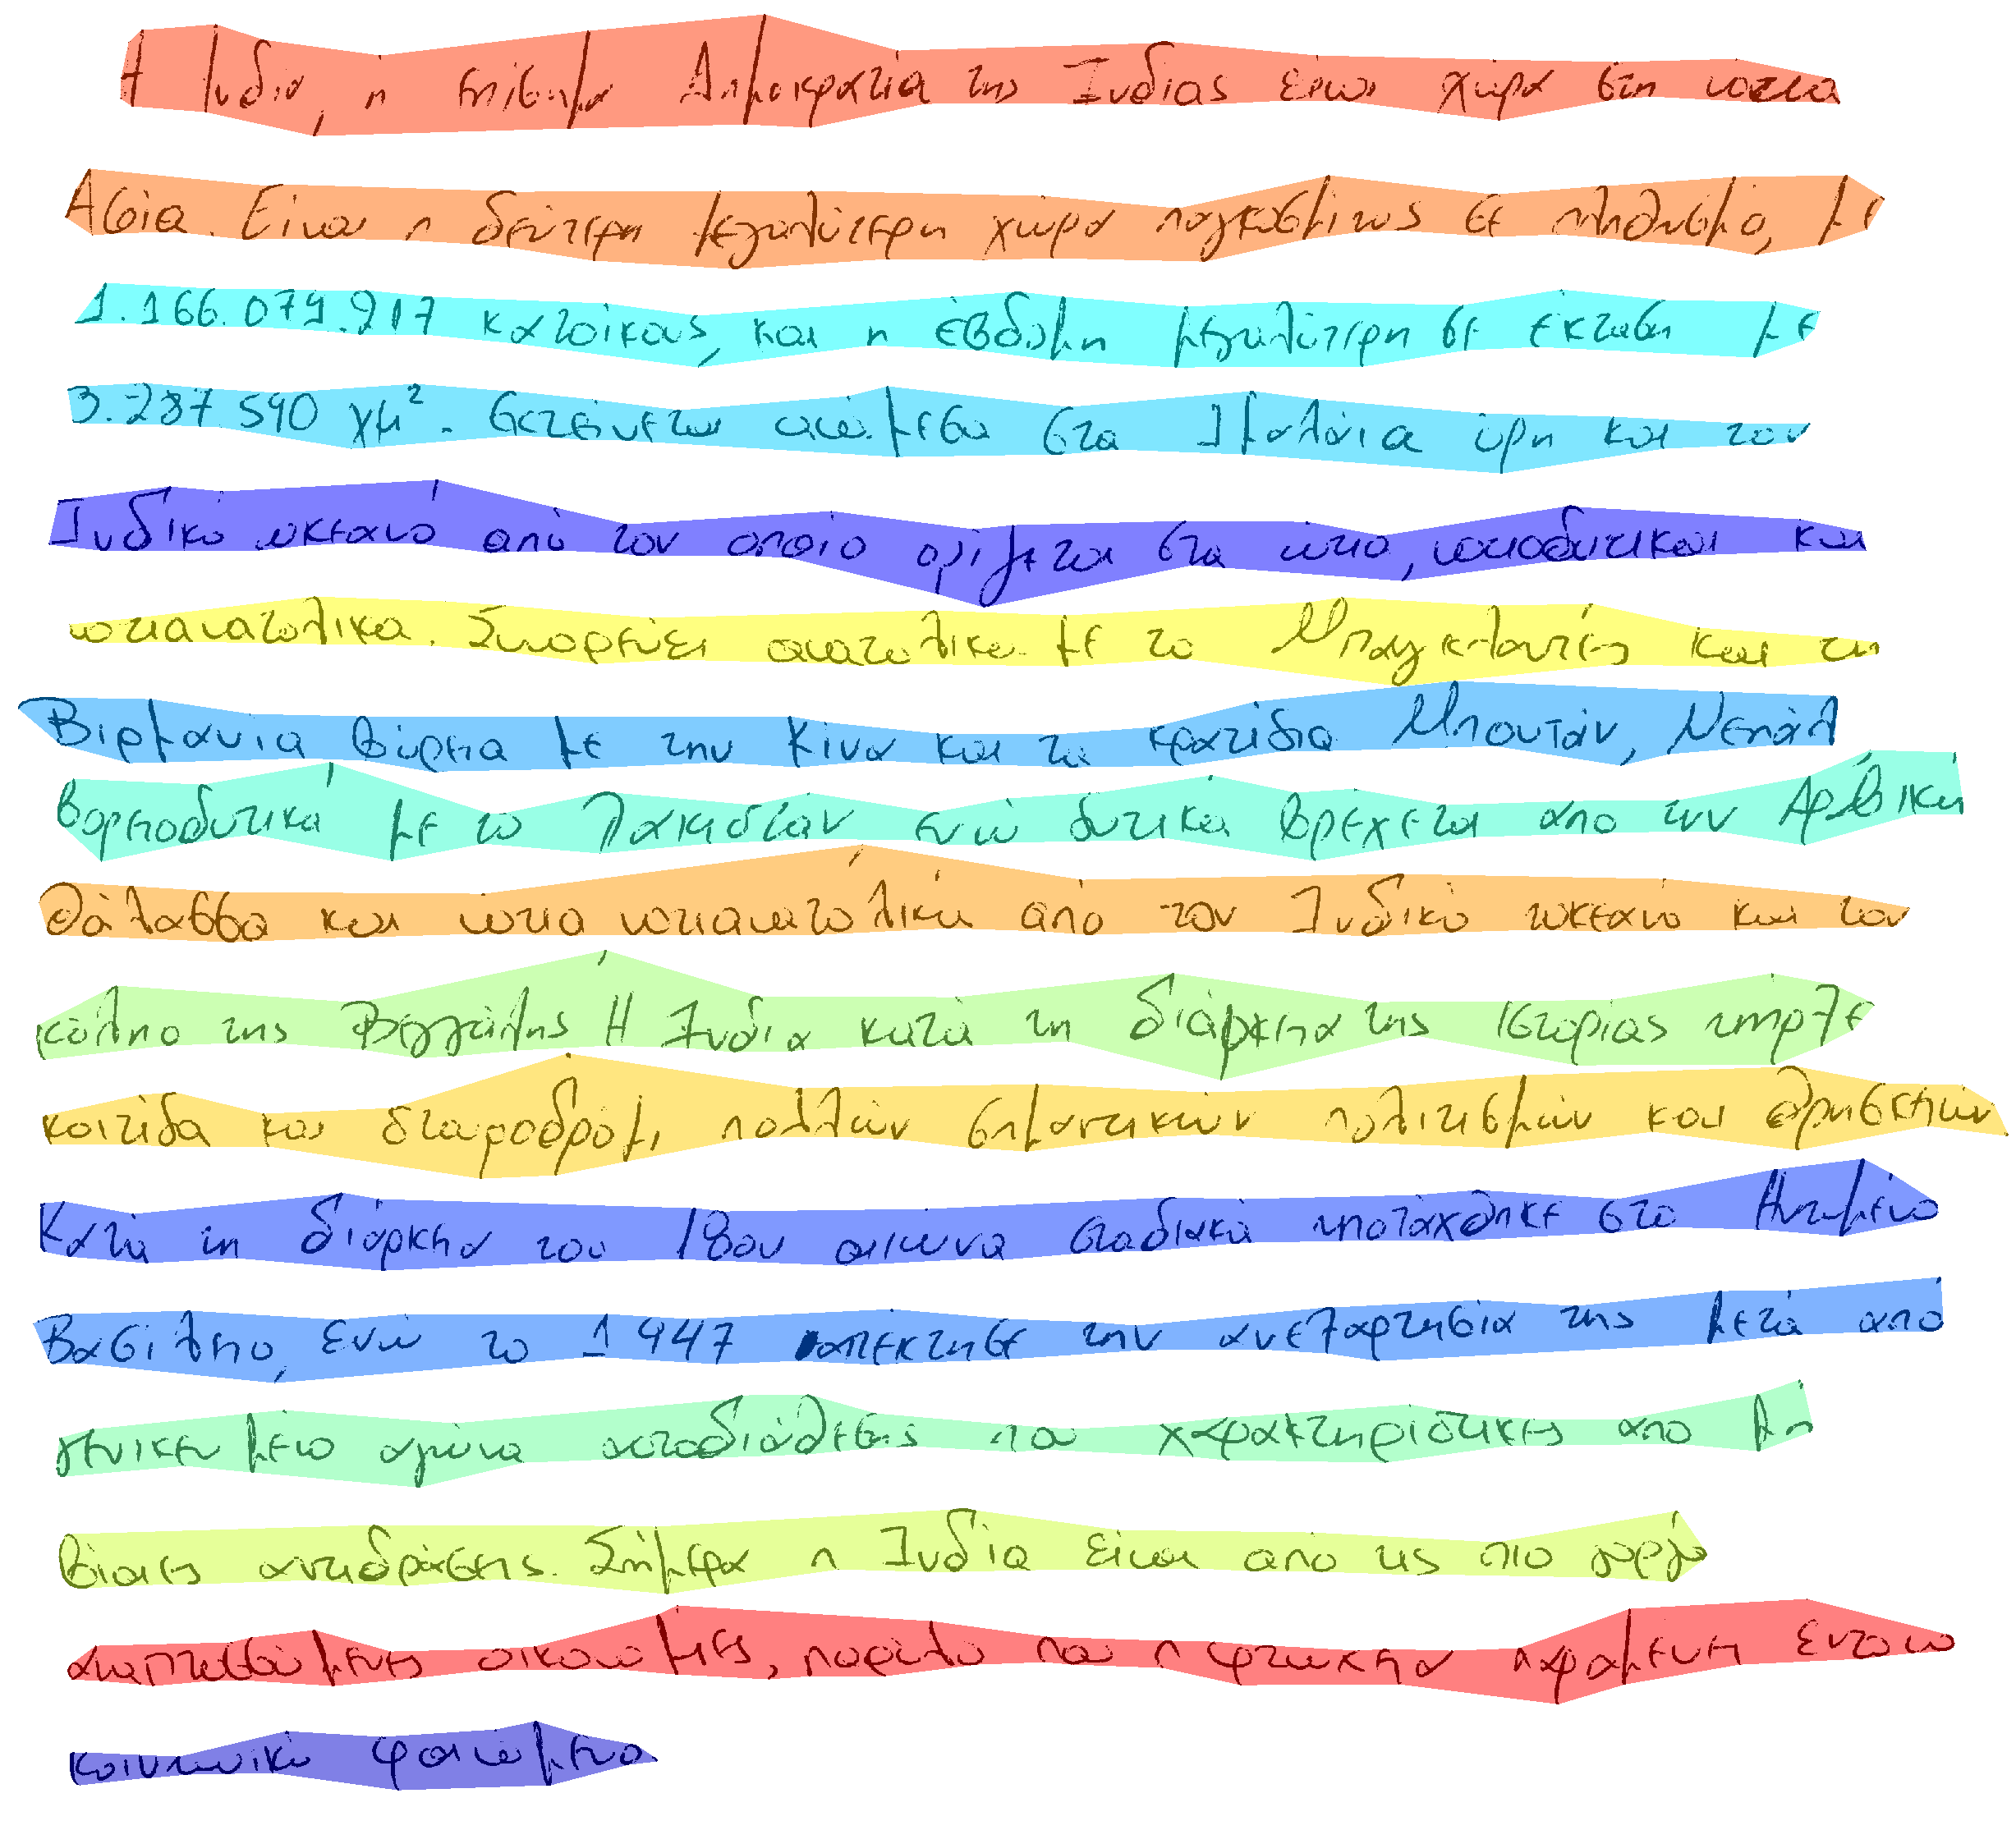 Η Ινδία, ή επίσημα Δημοκρατία της Ινδίας είναι χώρα στη νότια
Ασία. Είναι η δεύτερη μεγαλύτερη χώρα παγκοσμίως σε πληθυσμό, με
1.166.079.217 κατοίκους, και η έβδομη μεγαλύτερη σε έκταση με
3.287.590 χμ². Εκτείνεται ανάμεσα στα Ιμαλάια όρη και τον
Ινδικό ωκεανό από τον οποίο ορίζεται στα νότια, νοτιοδυτικά και
νοτιανατολικά. Συνορεύει ανατολικά με το Μπαγκλαντές και τη
Βιρμανία βόρεια με την Κίνα και τα κρατίδια Μπουτάν, Νεπάλ
βορειοδυτικά με το Πακιστάν ενώ δυτικά βρέχεται απο την Αραβική
θάλασσα και νότια νοτιανατολικά από τον Ινδικό ωκεανό και τον
κόλπο της Βεγγάλης Η Ινδία κατά τη διάρκεια της ιστορίας υπήρξε
κοιτίδα και σταυροδρόμι πολλών σημαντικών πολιτισμών και θρησκειών
Κατά τη διάρκεια του 18ου αιώνα σταδιακά υποτάχθηκε στο Ηνωμένο
Βασίλειο, ενώ το 1947 απέκτησε την ανεξαρτησία της μετά από
γενικευμένο αγώνα αυτοδιάθεσης που χαρακτηρίστηκε από μη
βίαιες αντιδράσεις. Σήμερα η Ινδία είναι από τις πιο γοργά
αναπτυσσόμενες οικονομίες, παρόλο που η φτώχεια παραμένει έντονο
κοινωνικό φαινόμενο